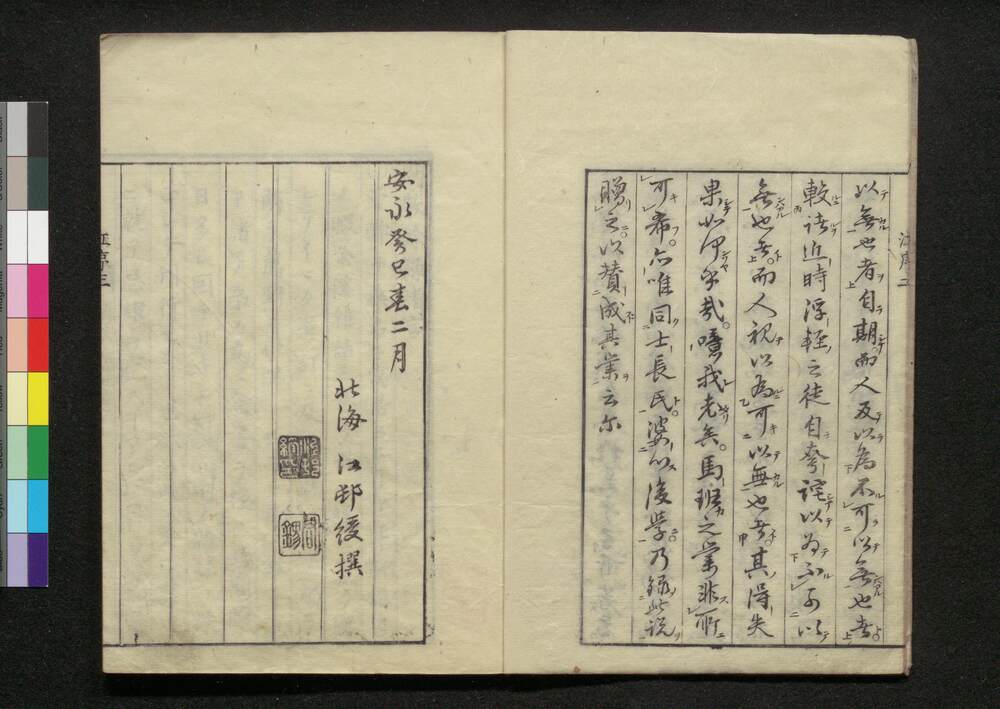 以無也者自期而人反以為不可以無也者
較諸近時浮輕之徒自夸詫以為不可以
無也者而人視以為可以無也者其得失
果如何乎哉噫我老矣馬班之業非所
可希亦唯同士長氏婆心後学乃録此説
贈之以賛成其業云尓
江序二
安永癸巳春二月
北海 江邨綬撰
江序三